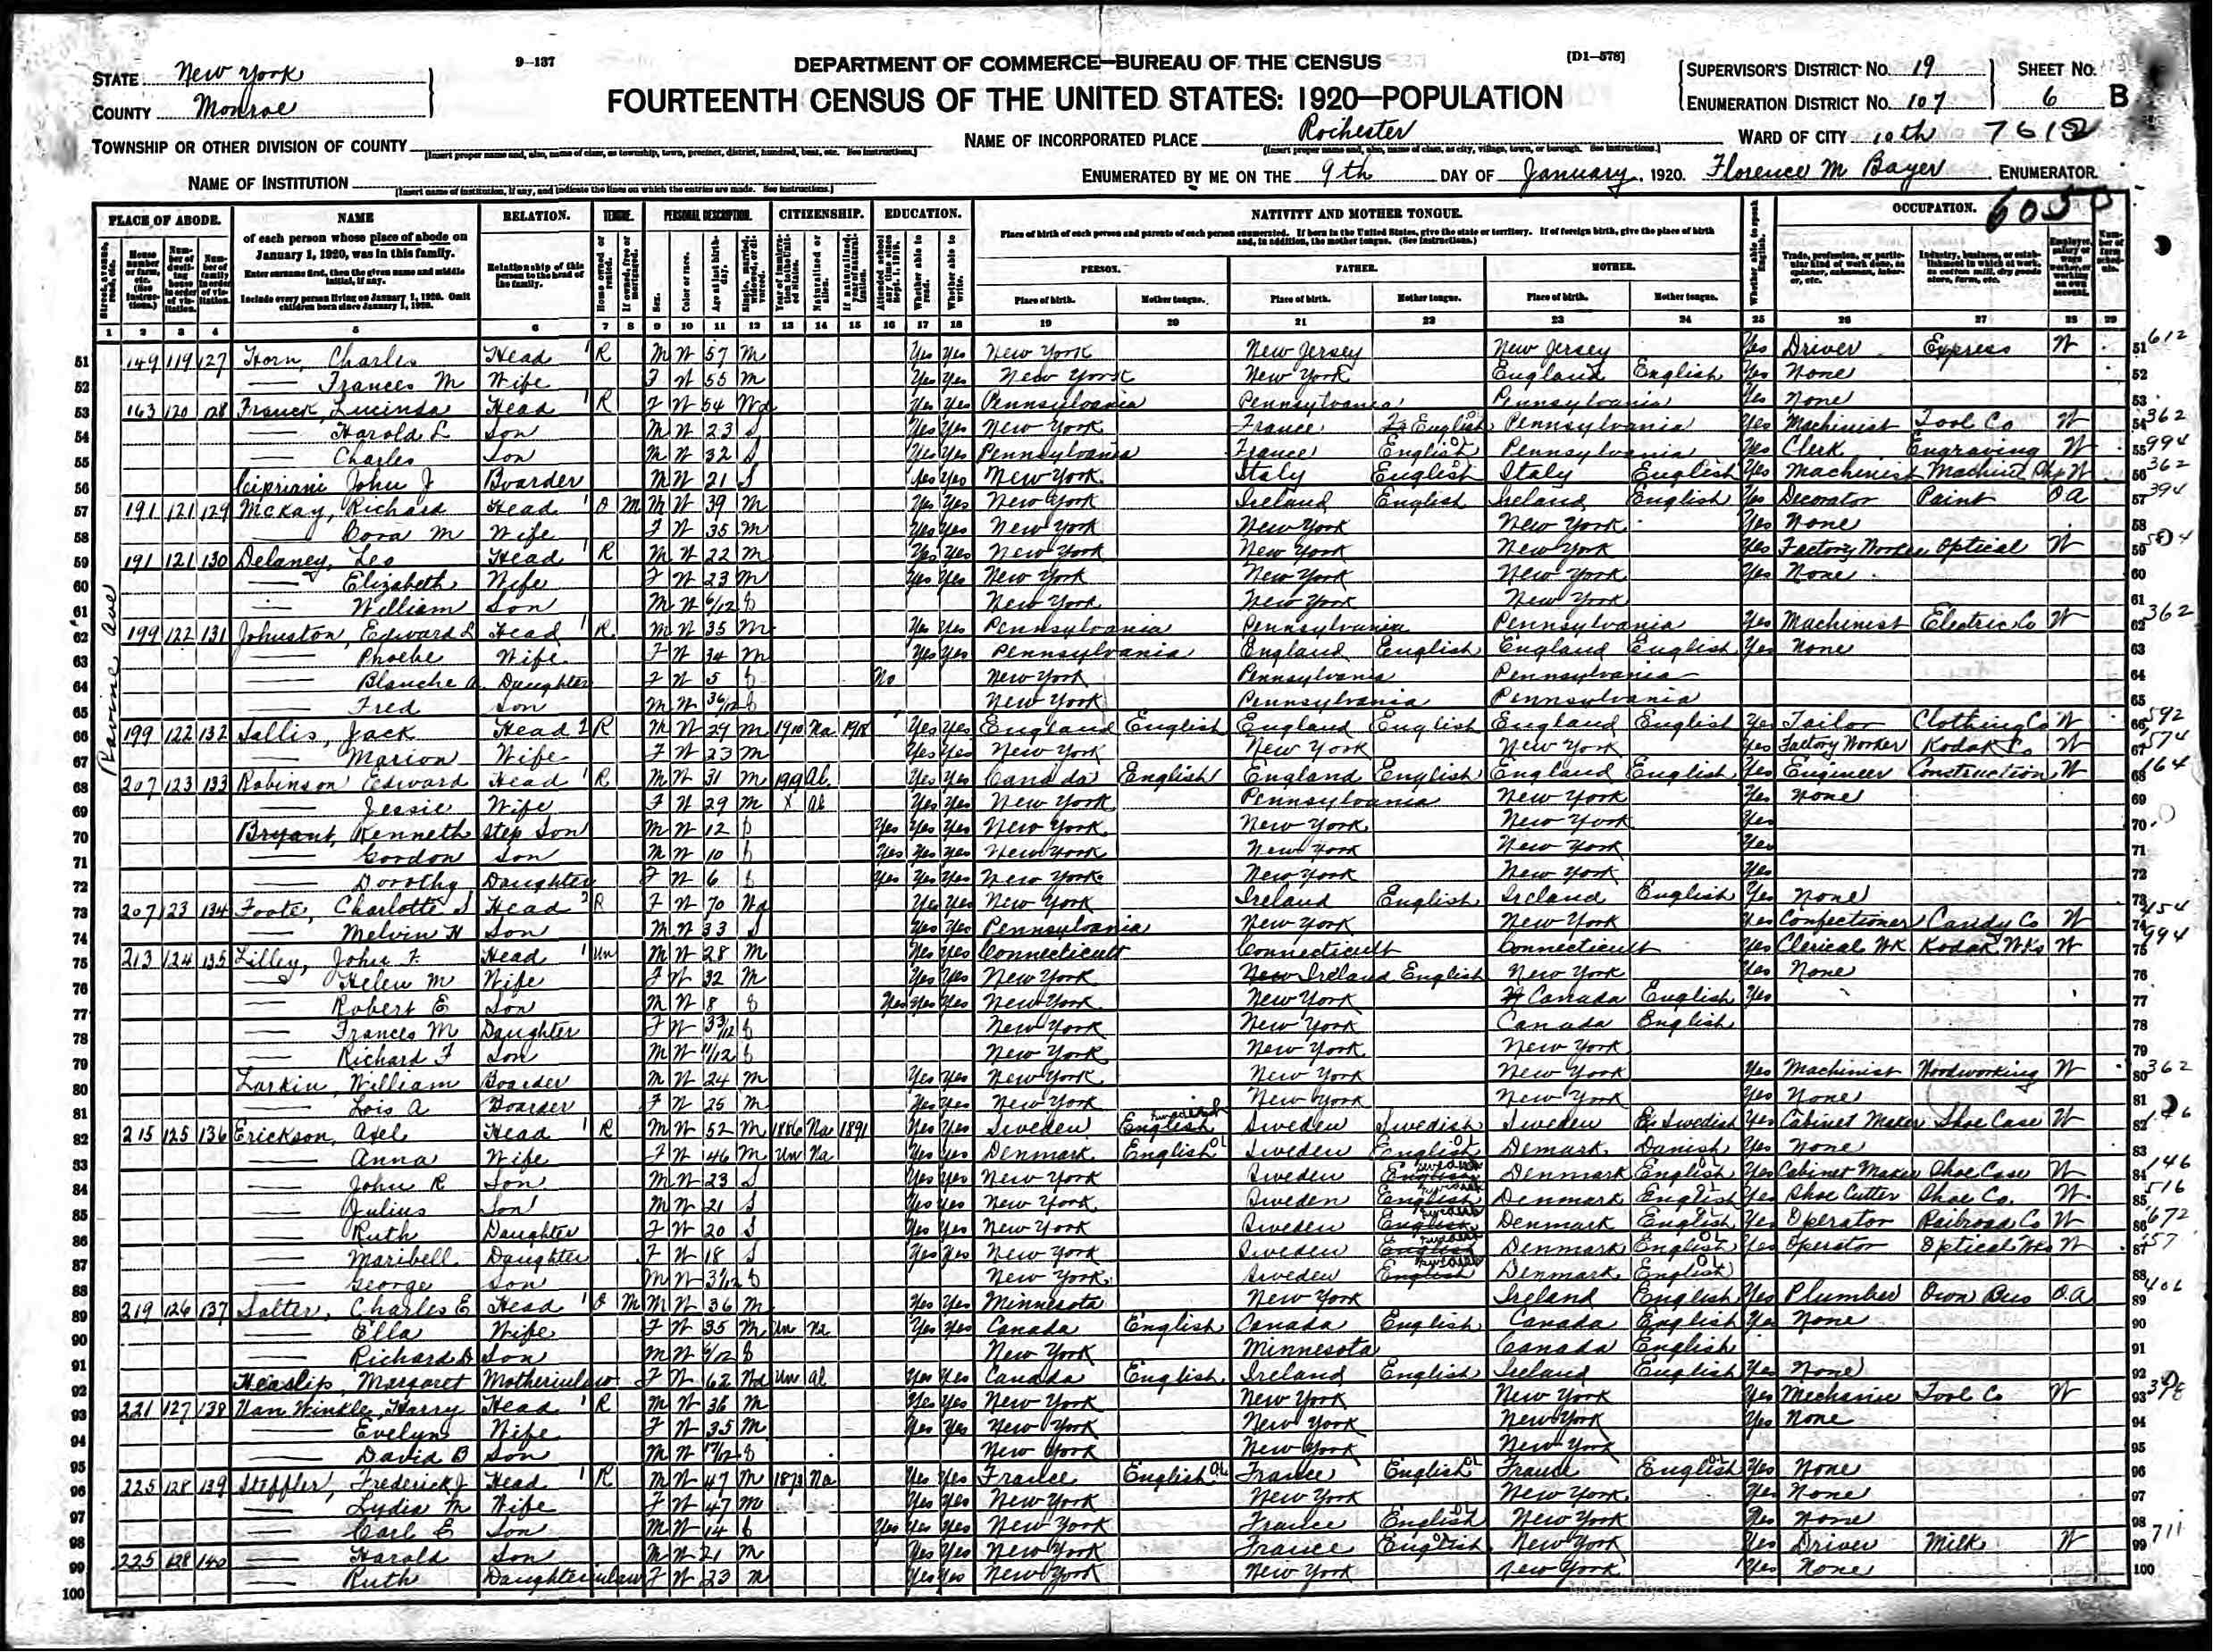 9—137
DEPARTMENT OF COMMERCE—BUREAU OF THE CENSUS
[D1—578]
STATE New York
COUNTY Monroe
FOURTEENTH CENSUS OF THE UNITED STATES: 1920—POPULATION
SUPERVISOR'S DISTRICT NO. 19
ENUMERATION DISTRICT NO. 107
SHEET NO. 6 B
TOWNSHIP OR OTHER DIVISION OF COUNTY
[Insert proper name and, also, name of class, as township, town, precinct, district, hundred, beat, etc. See instructions.]
NAME OF INCORPORATED PLACE Rochester
[Insert proper name and, also, name of class, as city, village, town, or borough. See instructions.]
WARD OF CITY 10th 7612
NAME OF INSTITUTION
[Insert name of institution, if any, and indicate the lines on which the entries are made. See instructions.]
ENUMERATED BY ME ON THE 9th DAY OF January, 1920. Florence M Bayer ENUMERATOR.
6050
PLACE OF ABODE. NAME RELATION. TENURE. PERSONAL DESCRIPTION. CITIZENSHIP. EDUCATION. NATIVITY AND MOTHER TONGUE. OCCUPATION.
of each person whose place of abode on January 1, 1920, was in this family.
Enter surname first, then the given name and middle initial, if any.
Include every person living on January 1, 1920. Omit children born since January 1, 1920.
Relationship of this person to the head of the family.
Place of birth of each person and parents of each person enumerated. If born in the United States, give the state or territory. If of foreign birth, give the place of birth and, in addition, the mother tongue. (See Instructions.)
PERSON. FATHER. MOTHER.
Place of birth. Mother tongue. Place of birth. Mother tongue. Place of birth. Mother tongue.
1 2 3 4 5 6 7 8 9 10 11 12 13 14 15 16 17 18 19 20 21 22 23 24 25 26 27 28 29
Ravine Ave
51 149 119 127 Horn, Charles Head 1 R M W 57 M Yes Yes New York New Jersey New Jersey Yes Driver Express W 51 612
52 —— Frances M Wife F W 55 M Yes Yes New York New York England English Yes None 52
53 163 120 128 Franck, Lucinda Head 1 R F W 54 Wd Yes Yes Pennsylvania Pennsylvania Pennsylvania Yes None 53
54 —— Harold L Son M W 23 S Yes Yes New York France English Pennsylvania Yes Machinist Tool Co W 54 362
55 —— Charles Son M W 32 S Yes Yes Pennsylvania France English Pennsylvania Yes Clerk Engraving W 55 994
56 Cipriani John J Boarder M W 21 S Yes Yes New York Italy English Italy English Yes Machinist Machine W 56 362
57 191 121 129 McKay, Richard Head 1 O M M W 39 M Yes Yes New York Ireland English Ireland English Yes Decorator Paint OA 57 394
58 —— Cora M Wife F W 35 M Yes Yes New York New York New York Yes None 58
59 191 121 130 Delaney, Leo Head 1 R M W 22 M Yes Yes New York New York New York Yes Factory Worker Optical W 59
60 —— Elizabeth Wife F W 23 M Yes Yes New York New York New York Yes None 60
61 —— William Son M W 6/12 S New York New York New York 61
62 199 122 131 Johnston, Edward L Head 1 R M W 35 M Yes Yes Pennsylvania Pennsylvania Pennsylvania Yes Machinist Electric Co W 62 362
63 —— Phoebe Wife F W 34 M Yes Yes Pennsylvania England English England English Yes None 63
64 —— Blanche A. Daughter F W 5 S No New York Pennsylvania Pennsylvania 64
65 —— Fred Son M W 3 6/12 S New York Pennsylvania Pennsylvania 65
66 199 122 132 Sallis, Jack Head 2 R M W 29 M 1910 Na 1918 Yes Yes England English England English England English Yes Tailor Clothing Co W 66 592
67 —— Marion Wife F W 23 M Yes Yes New York New York New York Yes Factory Worker Kodak Co W 67 574
68 207 123 133 Robinson Edward Head 1 R M W 31 M Al Yes Yes Canada English England English England English Yes Engineer Construction W 68 164
69 —— Jessie Wife F W 29 M X Al Yes Yes New York Pennsylvania New York Yes None 69
70 Bryant, Kenneth Step Son M W 12 S Yes Yes Yes New York New York New York Yes 70
71 —— Gordon Son M W 10 S Yes Yes Yes New York New York New York Yes 71
72 —— Dorothy Daughter F W 6 S Yes Yes Yes New York New York New York Yes 72
73 207 123 134 Foote, Charlotte S Head 2 R F W 70 Wd Yes Yes New York Ireland English Ireland English Yes None 73
74 —— Melvin H Son M W 33 S Yes Yes Pennsylvania New York New York Yes Confectioner Candy Co W 74 454
75 213 124 135 Lilley, John F. Head 1 Un M W 28 M Yes Yes Connecticut Connecticut Connecticut Yes Clerical Wk Kodak Wks W 75 994
76 —— Helen M Wife F W 32 M Yes Yes New York Ireland English New York Yes None 76
77 —— Robert E Son M W 8 S Yes Yes Yes New York New York Canada English Yes 77
78 —— Frances M Daughter F W 3 3/12 S New York New York Canada English 78
79 —— Richard F Son M W 11/12 S New York New York New York 79
80 Larkin, William Boarder M W 24 M Yes Yes New York New York New York Yes Machinist Woodworking W 80 362
81 —— Lois A Boarder F W 25 M Yes Yes New York New York New York Yes None 81
82 215 125 136 Erickson, Axel Head 1 R M W 52 M 1886 Na 1891 Yes Yes Sweden English Sweden Swedish Sweden Swedish Yes Cabinet Maker Shoe Case W 82
83 —— Anna Wife F W 46 M Un Na Yes Yes Denmark English Sweden English Demark Danish Yes None 83
84 —— John R Son M W 23 S Yes Yes New York Sweden English Denmark English Yes Cabinet Maker Shoe Case W 84 146
85 —— Julius Son M W 21 S Yes Yes New York Sweden English Denmark English Yes Shoe Cutter Shoe Co. W 85 516
86 —— Ruth Daughter F W 20 S Yes Yes New York Sweden English Denmark English Yes Operator Railroad Co W 86 672
87 —— Maribell Daughter F W 18 S Yes Yes New York Sweden English Denmark English Yes Operator Optical Wks W 87
88 —— George Son M W 3 1/12 S New York Sweden English Denmark English 88
89 219 126 137 Salter, Charles E Head 1 O M M W 36 M Yes Yes Minnesota New York Ireland English Yes Plumber Own Bus OA 89 406
90 —— Ella Wife F W 35 M Un Na Yes Yes Canada English Canada English Canada English Yes None 90
91 —— Richard D Son M W 6/12 S New York Minnesota Canada English 91
92 Heaslip, Margaret Motherinlaw F W 62 Wd Un Al Yes Yes Canada English Ireland English Ireland English Yes None 92
93 221 127 138 Van Winkle, Harry Head 1 R M W 36 M Yes Yes New York New York New York Yes Mechanic Tool Co W 93
94 —— Evelyn Wife F W 35 M Yes Yes New York New York New York Yes None 94
95 —— David B Son M W S New York New York New York 95
96 225 128 139 Steffler, Frederick J Head 1 R M W 47 M 1873 Na Yes Yes France English France English France English Yes None 96
97 —— Lydia M Wife F W 47 M Yes Yes New York New York New York Yes None 97
98 —— Carl E Son M W 14 S Yes Yes Yes New York France English New York Yes None 98
99 225 128 140 —— Harold Son M W 21 M Yes Yes New York France English New York Yes Driver Milk W 99 711
100 —— Ruth Daughterinlaw F W 23 M Yes Yes New York New York New York Yes None 100